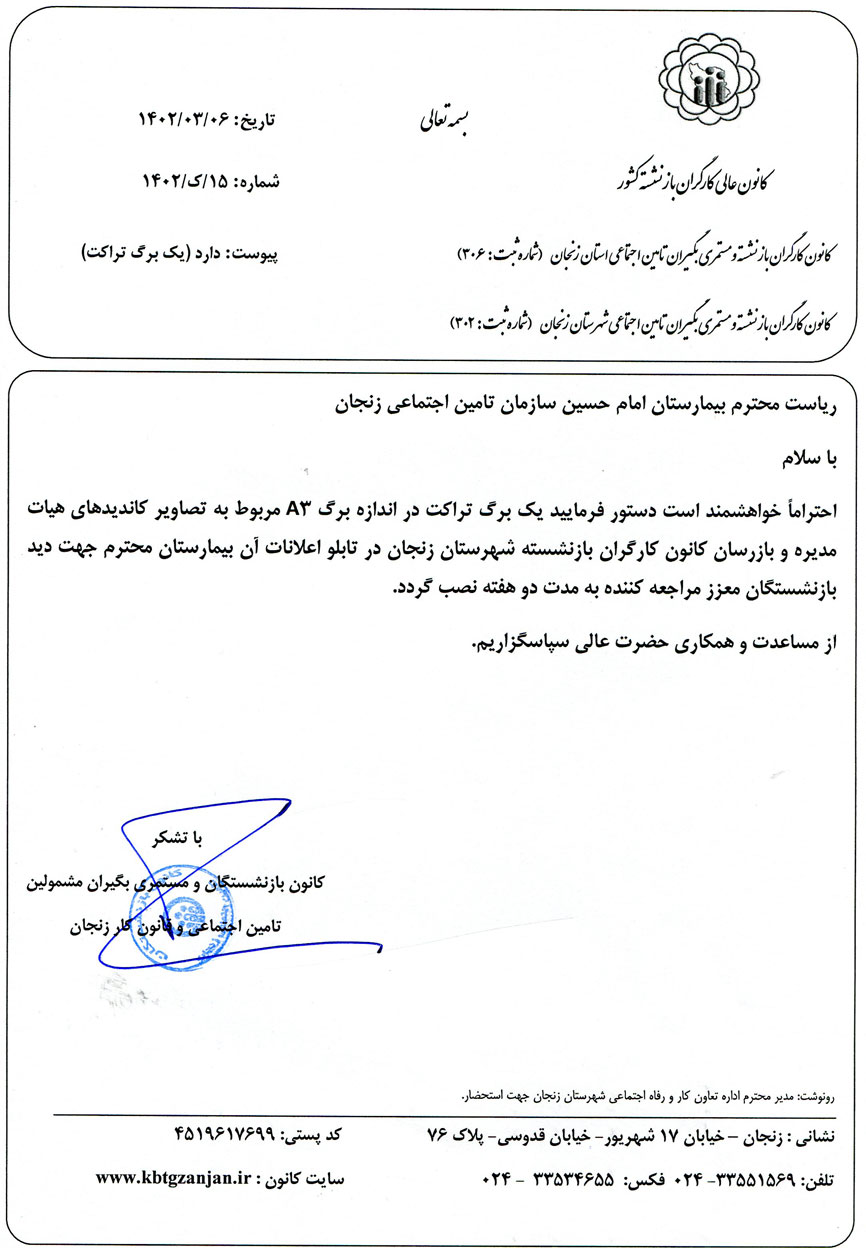 بسمه تعالی
تاریخ: ۱۴۰۲/۰۳/۰۶
کانون عالی کارگران بازنشسته کشور
شماره: ۱۵/ک/۱۴۰۲
کانون کارگران بازنشسته و مستمری بگیران تامین اجتماعی استان زنجان (شماره ثبت: ۳۰۶)
پیوست: دارد (یک برگ تراکت)
کانون کارگران بازنشسته و مستمری بگیران تامین اجتماعی شهرستان زنجان (شماره ثبت: ۳۰۲)
ریاست محترم بیمارستان امام حسین سازمان تامین اجتماعی زنجان
با سلام
احتراماً خواهشمند است دستور فرمایید یک برگ تراکت در اندازه برگ A۳ مربوط به تصاویر کاندیدهای هیات
مدیره و بازرسان کانون کارگران بازنشسته شهرستان زنجان در تابلو اعلانات آن بیمارستان محترم جهت دید
بازنشستگان معزز مراجعه کننده به مدت دو هفته نصب گردد.
از مساعدت و همکاری حضرت عالی سپاسگزاریم.
با تشکر
کانون بازنشستگان و مستمری بگیران مشمولین
تامین اجتماعی و قانون کار زنجان
رونوشت: مدیر محترم اداره تعاون کار و رفاه اجتماعی شهرستان زنجان جهت استحضار.
نشانی : زنجان – خیابان ۱۷ شهریور- خیابان قدوسی- پلاک ۷۶
کد پستی: ۴۵۱۹۶۱۷۶۹۹
تلفن: ۳۳۵۵۱۵۶۹- ۰۲۴ فکس: ۳۳۵۳۴۶۵۵ - ۰۲۴
سایت کانون : www.kbtgzanjan.ir